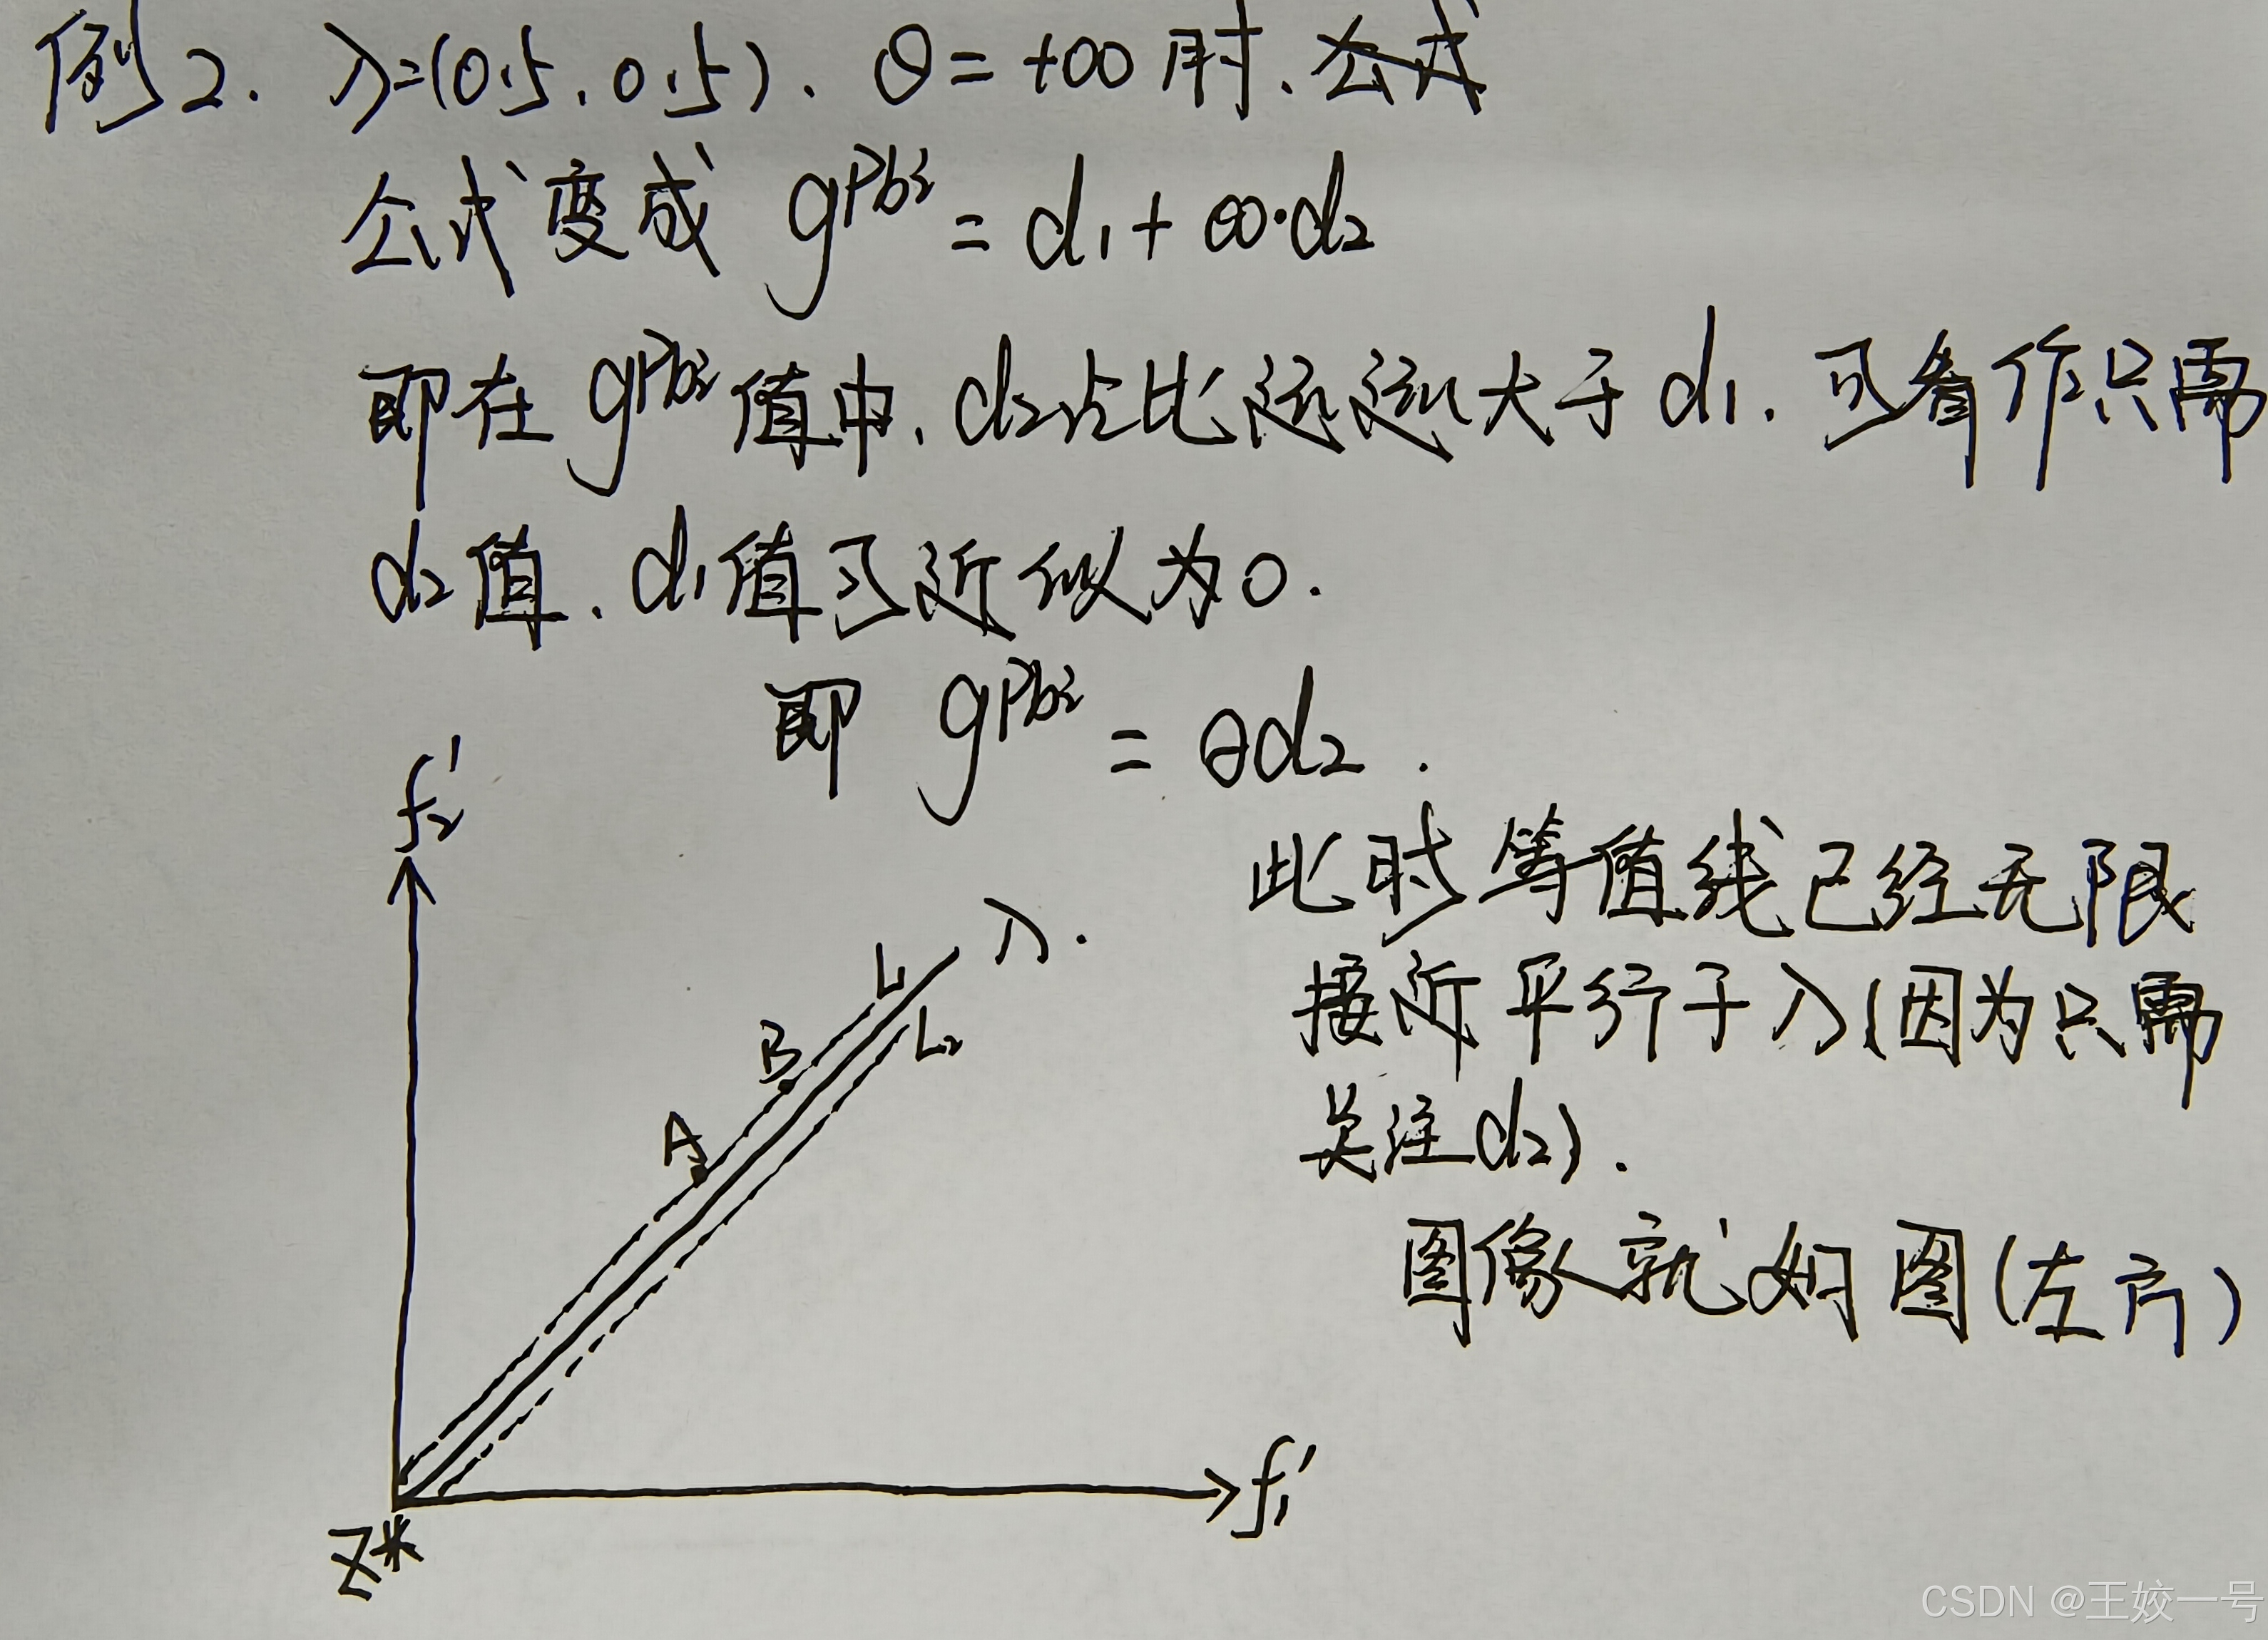 例2. λ=(0.5, 0.5). θ=+∞ 时. 公式
公式变成 g^pbi = d₁+∞·d₂
即在 g^pbi 值中, d₂占比远远大于 d₁. 可看作只需
d₂值, d₁值可近似为0.
即 g^pbi = θd₂.
f₂'
此时等值线已经无限
接近平行于λ(因为只需
关注d₂).
图像就如图(左方)
λ.
L₁
L₂
B
A
f₁'
Z*
CSDN @王姣一号